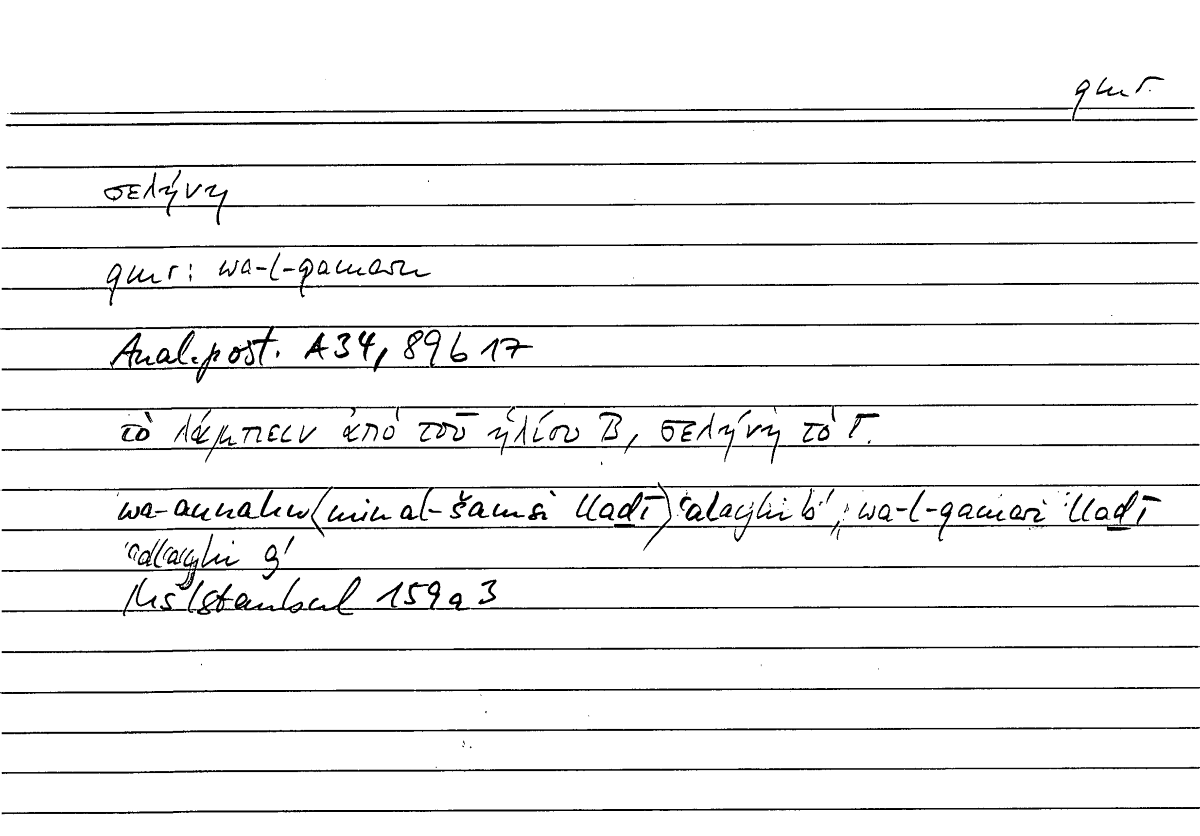 qmr.
σελήνη
qmr: wa-l-qamaru
Anal. post. A34, 89b17
τὸ λάμπειν ἀπὸ τοῦ ἡλίου B, σελήνη τὸ Γ.
wa-annahu (min al-šamsi lladī) ʿalayhi b', wa-l-qamari lladī
ʿalayhi g'
Ms Istanbul 159a3